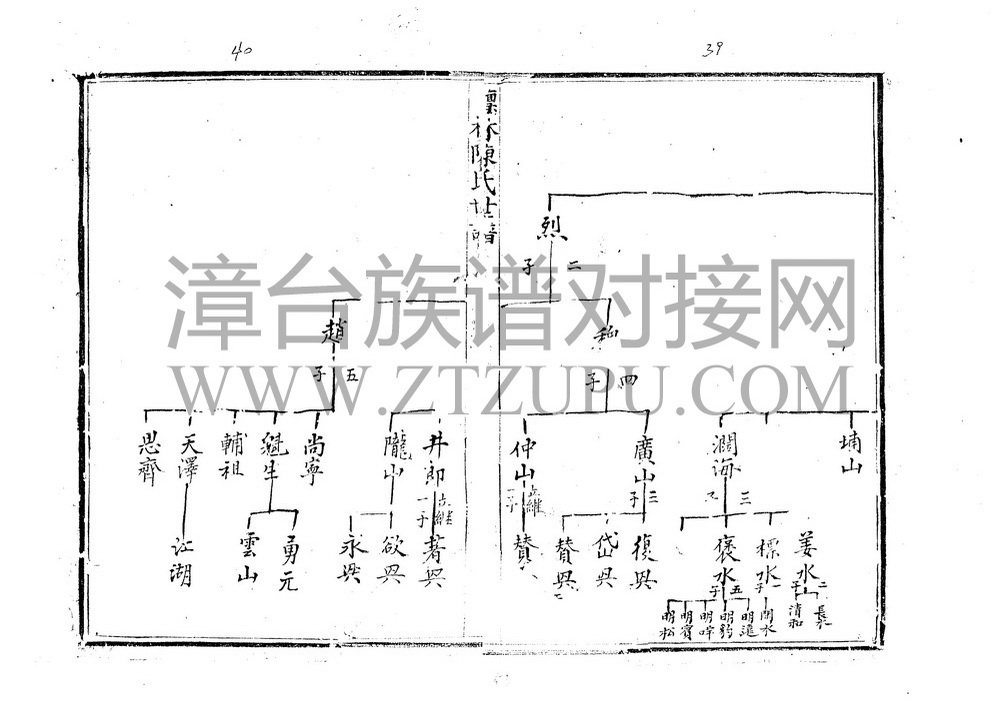 40
39
陳氏世譜
烈
二子
和
四子
趙
五子
埔山
瀾海
三子
廣山
三子
仲山
立繼
一子
井郎
立繼
一子
隴山
尚寧
繼生
輔祖
天澤
思齊
姜水
二子
長水
清和
標水
一子
開水
褒水
五子
明進
明豹
明賓
明松
復興
岱興
贊興
贊
著興
欲興
永興
勇元
雲山
江湖
漳台族谱对接网
WWW.ZTZUPU.COM